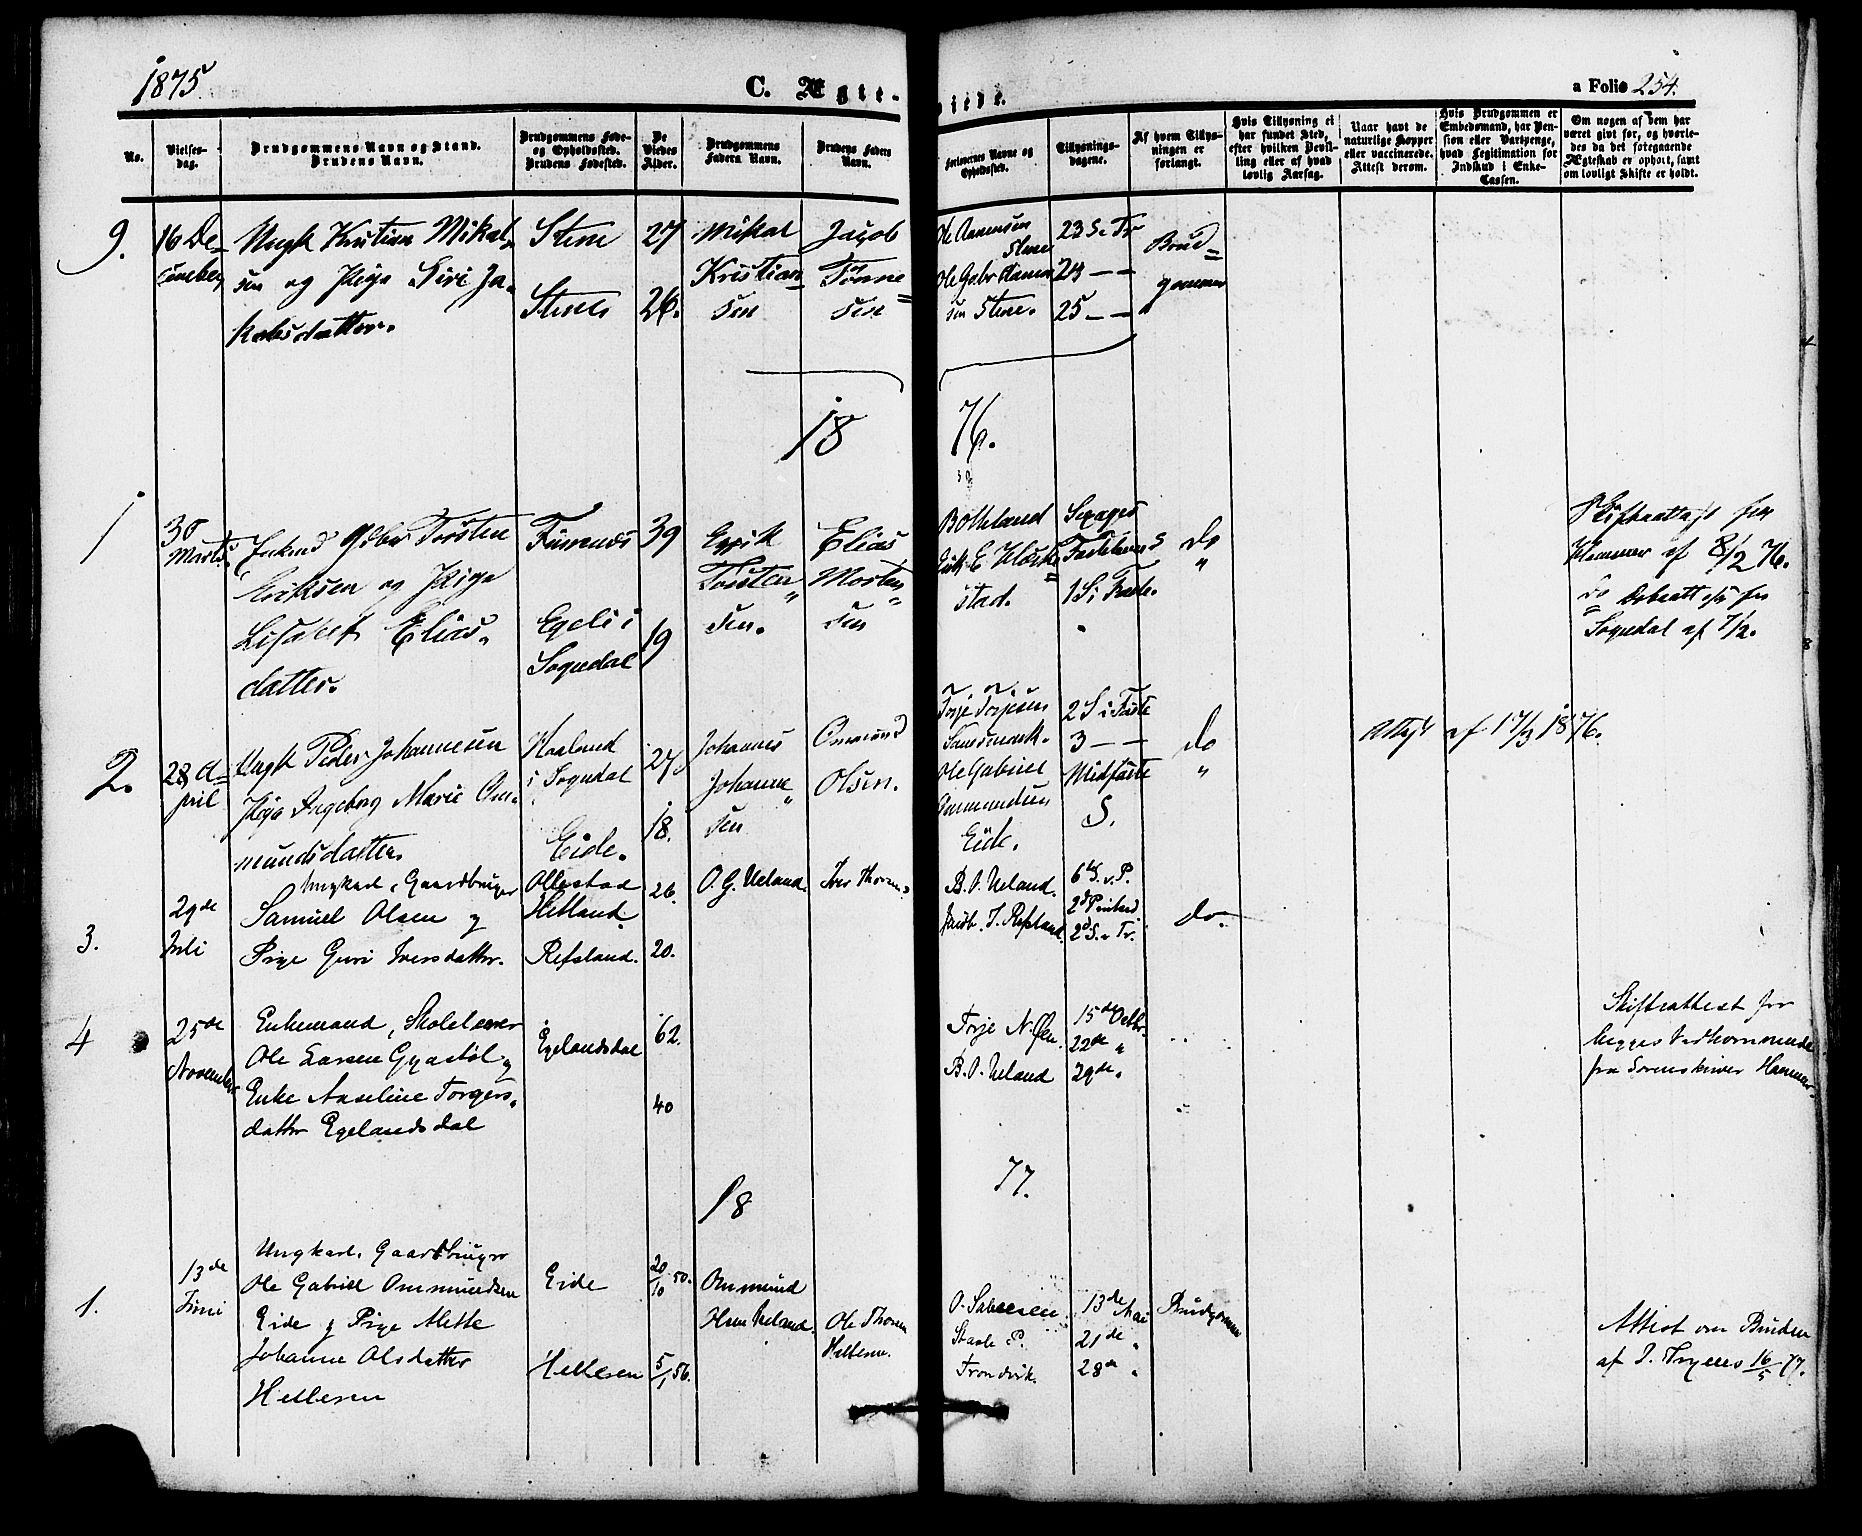 1875
C. Ægte-
viede.
a Folio 254.
No.
Vielses-
dag.
Brudgommens Navn og Stand.
Brudens Navn.
Brudgommens Føde-
og Opholdssted.
Brudens Fødested.
De
Viedes
Alder.
Brudgommens
Faders Navn.
Brudens Faders
Navn.
Forlovernes Navne og
Opholdssted.
Tillysnings-
dagene.
Af hvem Tillys-
ningen er
forlangt.
Hvis Tillysning ei
har fundet Sted,
efter hvilken Bevil-
ling eller af hvad
lovlig Aarsag.
Naar havt de
naturlige Kopper
eller vaccinerede.
Attest derom.
Hvis Brudgommen er
Embedsmand, har Pen-
sion eller Vartpenge,
hvad Legitimation for
Indskud i Enke-
Cassen.
Om nogen af dem har
været givt før, og hvorle-
des da det foregaaende
Ægteskab er ophørt, samt
om lovligt Skifte er holdt.
9.
16 De-
cember
Ungk Kristian Mikal-
sen og Pige Siri Ja-
kobsdatter.
Stene
Stene
27
26.
Mikal
Kristian-
sen
Jacob
Tønne-
sen
Ole Aanensen
Stene
Ole Gabr Aanen
sen Stene.
23 S e Tr
24 – –
25 – –
Brud-
gommen
18
76.
1
30
Marts
Enkmd Tørsten
Eriksen og Pige
Lisabet Elias-
datter.
Egeli i
Sogndal
39
19
Erik
Tørsten-
sen.
Elias
Morten-
sen
E
stad.
Sexages
Fastelavns
1 S i Faste.
do
"
Skifteattest fra
Hammer af 8/2 76.
do
Sogndal af 7/2.
2.
28 A-
pril
Ungk Peder Johannesen
Pige Ingeborg Marie Om-
mundsdatter.
Haaland
i Sogndal
Eide.
27
18.
Johannes
Johanne-
sen
Ommund
Olsen.
Torje Torjesen
Ole Gabriel
Ommundsen
Eide.
2 S i Faste
3 – –
Midfaste
S.
do
"
Attest af 17/3 1876.
3.
29de
Juli
Ungkarl, Gaardbruger
Samuel Olsen og
Pige Guri Iversdatter.
Ollestad
Hetland
Refsland.
26.
20.
O. G. Ueland.
Iver Thorsen
B. O. Ueland.
Jacob I. Refsland.
6te S. e. P.
2d Pintsed.
2d S. e Tr.
do.
4
25de
November
Enkemand, Skolelærer
Ole Larsen Gyastøl og
Enke Aaseline Torgers-
datter Egelandsdal
Egelandsdal
62.
40
Torje N.
B. O. Ueland
15de Octbr.
22de "
29de "
Skifteattest for
begges Vedkommende
fra Sorenskriver Hammer.
18
77.
1.
13de
Juni
Ungkarl, Gaardbruger
Ole Gabriel Ommundsen
Eide og Pige Mette
Johanne Olsdatter
Hellesen
Eide
Hellesen
20/10 50.
5/1 56.
Ommund
Olsen Ueland.
Ole Thorsen
Hellesen.
O. Salvesen
Stasle P.
Trondvik.
13de Mai
21de "
28de "
Brudgommen
Attest om Bruden
af P. 16/5 77.